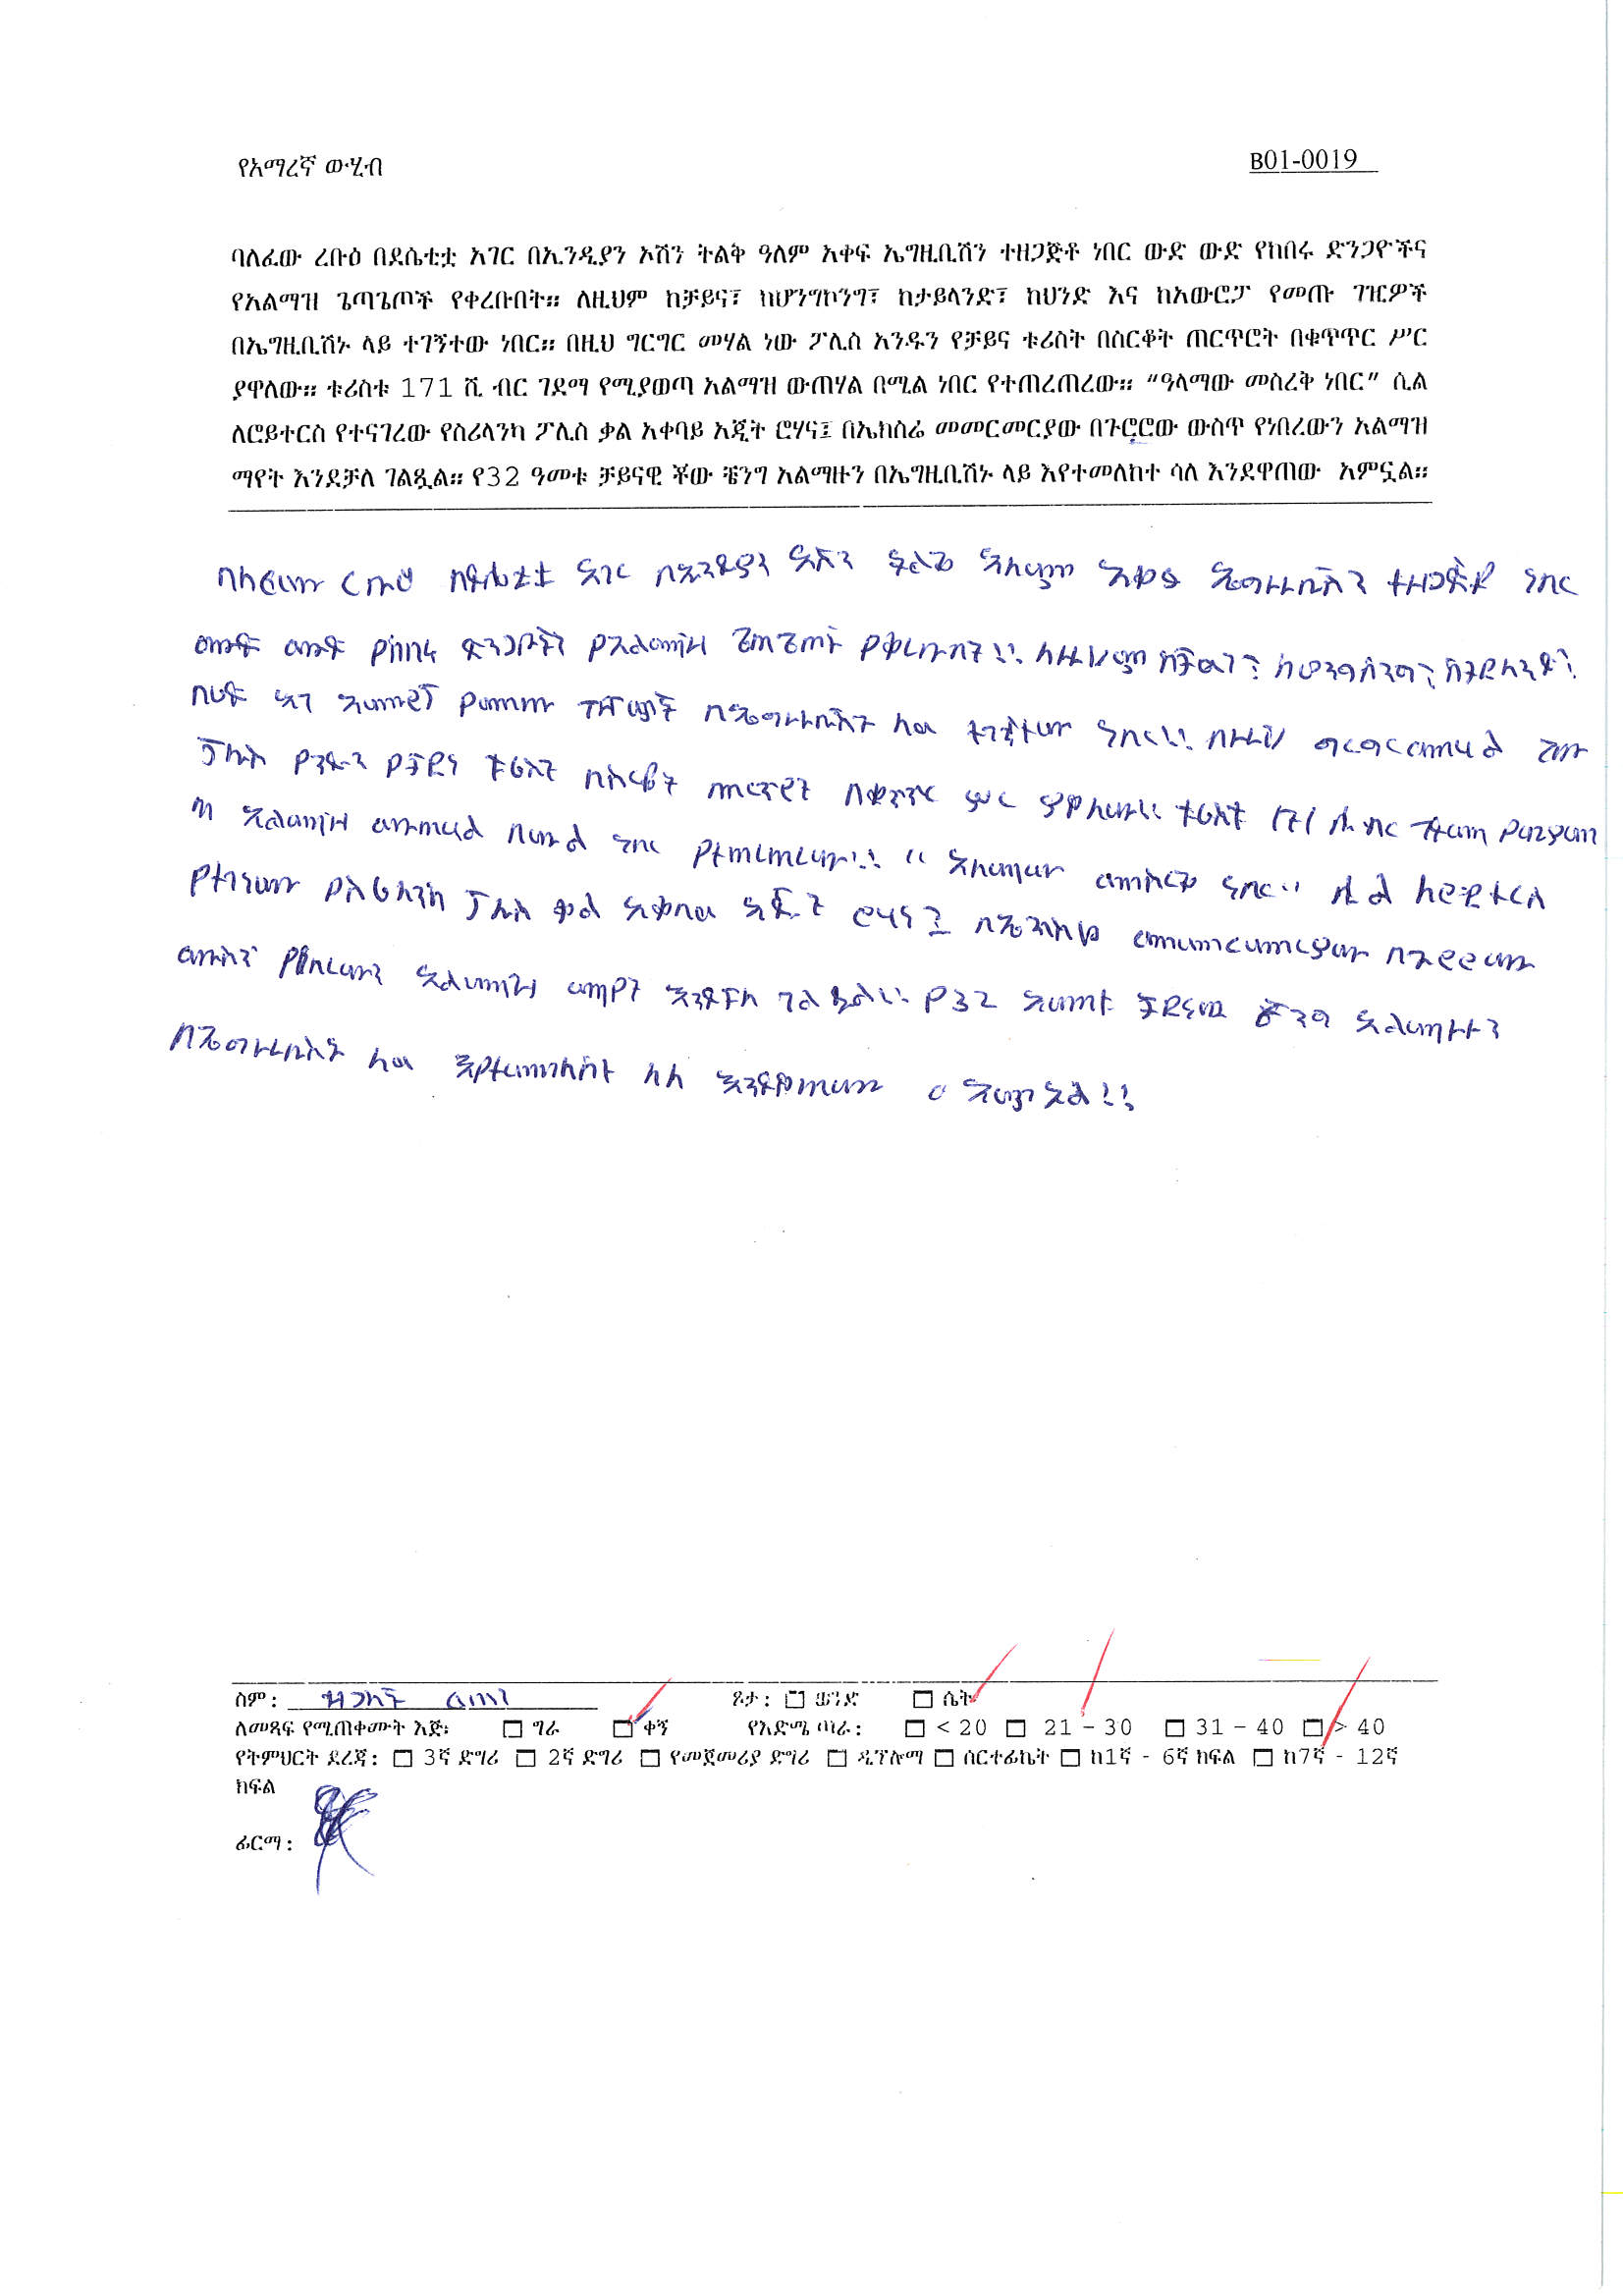 የአማረኛ ውሂብ
B01-0019
ባለፈው ረቡዕ በደሴቲቷ አገር በኢንዲያን ኦሽን ትልቅ ዓለም አቀፍ ኤግዚቢሽን ተዘጋጅቶ ነበር ውድ ውድ የከበሩ ድንጋዮችና
የአልማዝ ጌጣጌጦች የቀረቡበት። ለዚህም ከቻይና፣ ከሆንግኮንግ፣ ከታይላንድ፣ ከህንድ እና ከአውሮፓ የመጡ ገዢዎች
በኤግዚቢሽኑ ላይ ተገኝተው ነበር። በዚህ ግርግር መሃል ነው ፖሊስ አንዱን የቻይና ቱሪስት በስርቆት ጠርጥሮት በቁጥጥር ሥር
ያዋለው። ቱሪስቱ 171 ሺ ብር ገደማ የሚያወጣ አልማዝ ውጠሃል በሚል ነበር የተጠረጠረው። “ዓላማው መስረቅ ነበር” ሲል
ለሮይተርስ የተናገረው የስሪላንካ ፖሊስ ቃል አቀባይ አጂት ሮሃና፤ በኤክስሬ መመርመርያው በጉሮሮው ውስጥ የነበረውን አልማዝ
ማየት እንደቻለ ገልጿል። የ32 ዓመቱ ቻይናዊ ቾው ቼንግ አልማዙን በኤግዚቢሽኑ ላይ እየተመለከተ ሳለ እንደዋጠው አምኗል።
በለፈው ረቡዕ በደሴቲቷ አገር በኢንዲያን ኦሽን ትልቅ አለም አቀፍ ኤግዚቢሽን ተዘጋጅቶ ነበር
ውድ ውድ የከበሩ ድንጋዮችና የአልማዝ ጌጣጌጦች የቀረቡበት። ለዚህም ከቻይና፣ ከሆንግኮንግ፣ ከታይላንድ፣
በህድ እና አውሮፓ የመጡ ገዢዎች በኤግዚቢሽኑ ላይ ተገኝተው ነበር። በዚህ ግርግር መሃል ነው
ፖሊስ የንዱን የቻይና ቱሪስት በስርቆት ጠርጥሮት በቁጥጥር ሥር ያዋለው። ቱሪስቱ 171 ሺ ብር
አልማዝ ውጠሃል በሚል ነበር የተጠረጠረው። “ አላማው መስረቅ ነበር” ሲል ለሮይተርስ
የተናገረው የስሪላንካ ፖሊስ ቃል አቀባይ አጂት ሮሃና፤ በኤክስሬ መመርመርያው በጉሮሮው
ውስጥ የነበረውን አልማዝ ማየት እንደቻለ ገልጿል። የ32 አመቱ ቻይናዊ ቼንግ አልማዙን
በኤግዚቢሽኑ ላይ እየተመለከተ ሳለ እንደዋጠው አምኗል።
ስም: ጾታ: ወንድ ሴት
ለመጻፍ የሚጠቀሙት እጅ፡ ግራ ቀኝ የእድሜ ጣራ: < 20 21 – 30 31 – 40 > 40
የትምህርት ደረጃ: 3ኛ ድግሪ 2ኛ ድግሪ የመጀመሪያ ድግሪ ዲፕሎማ ሰርተፊኬት ከ1ኛ - 6ኛ ክፍል ከ7ኛ - 12ኛ
ክፍል
ፊርማ: